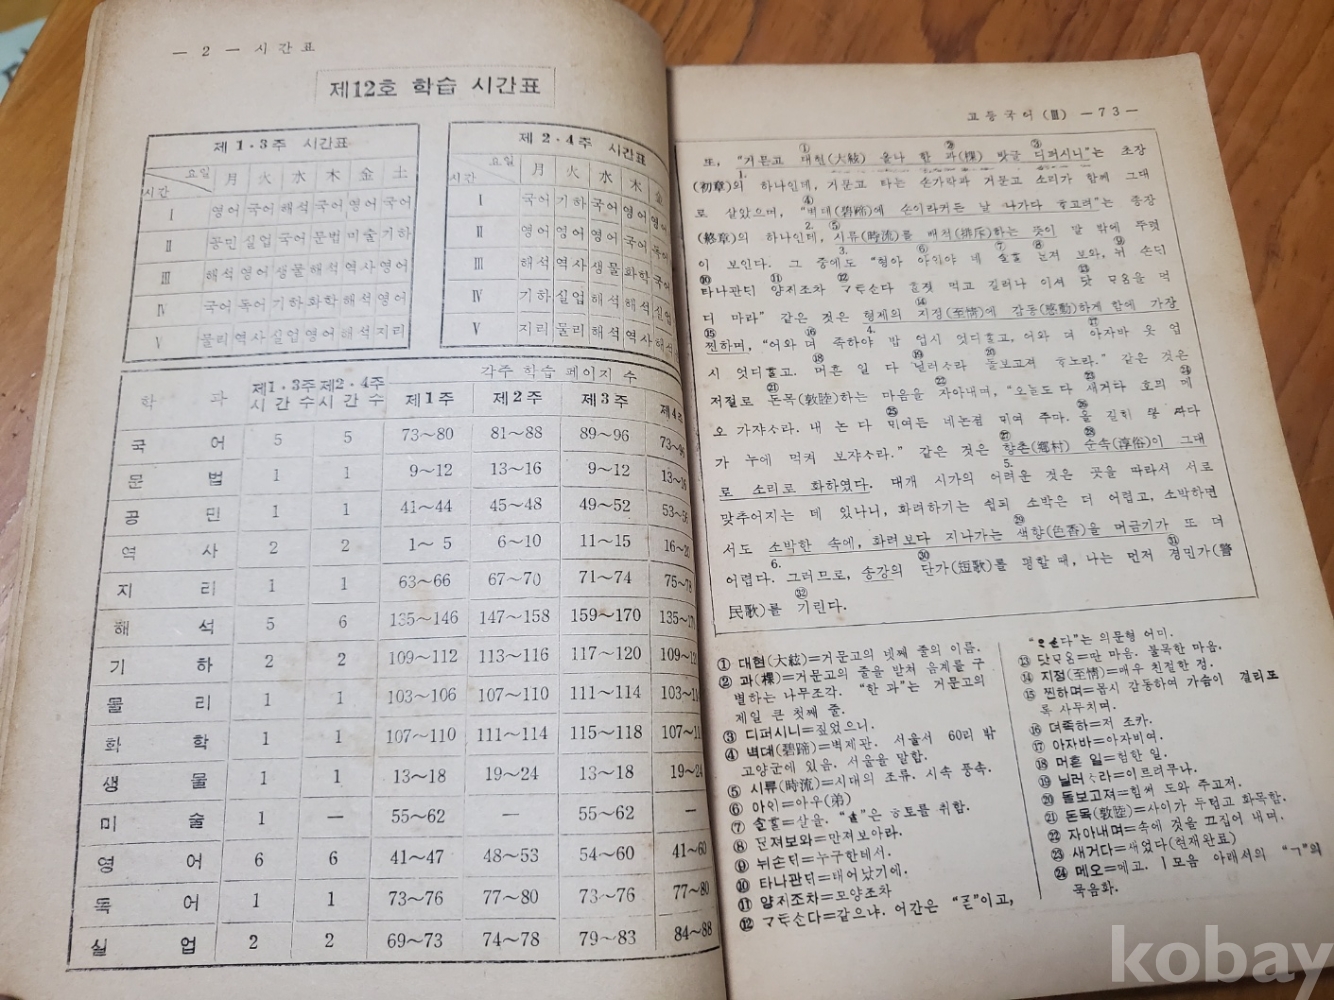 — 2 — 시간표
제12호 학습 시간표
제 1·3 주 시간표
요일 月 火 水 木 金 土
시간
I 영어 국어 해석 국어 영어 국어
II 공민 실업 국어 문법 미술 기하
III 해석 영어 생물 해석 역사 영어
IV 국어 독어 기하 화학 해석 영어
V 물리 역사 실업 영어 해석 지리
제 2·4 주 시간표
요일 月 火 水 木 金
시간
I 국어 기하 국어 영어 영어
II 영어 영어 영어 국어 독어
III 해석 역사 생물 화학 국어
IV 기하 실업 해석 해석 실업
V 지리 물리 해석 역사 해석
학 과 제1·3주 시간수 제2·4주 시간수 각주 학습 페이지 수
제1주 제2주 제3주 제4주
국 어 5 5 73~80 81~88 89~96 73~96
문 법 1 1 9~12 13~16 9~12 13~16
공 민 1 1 41~44 45~48 49~52 53~56
역 사 2 2 1~5 6~10 11~15 16~20
지 리 1 1 63~66 67~70 71~74 75~78
해 석 5 6 135~146 147~158 159~170 135~170
기 하 2 2 109~112 113~116 117~120 109~120
물 리 1 1 103~106 107~110 111~114 103~114
화 학 1 1 107~110 111~114 115~118 107~118
생 물 1 1 13~18 19~24 13~18 19~24
미 술 1 — 55~62 — 55~62 —
영 어 6 6 41~47 48~53 54~60 41~60
독 어 1 1 73~76 77~80 73~76 77~80
실 업 2 2 69~73 74~78 79~83 84~88
고등국어(Ⅲ) —73—
또, "거문고 대현(大絃) 올나 한 과(棵) 밧글 디퍼시니"는 초장
(初章)의 하나인데, 거문고 타는 손가락과 거문고 소리가 함께 그대
로 살았으며, "벽대(碧蹄)에 손이라커든 날 나가다 ᄒᆞ고려"는 종장
(終章)의 하나인데, 시류(時流)를 배척(排斥)하는 뜻이 말 밖에 뚜렷
이 보인다. 그 중에도 "형아 아ᄋᆡ야 네 ᄉᆞᆯᄒᆞᆯ ᄆᆞᆫ져 보와, 뉘 손ᄃᆡ
타나관ᄃᆡ 양ᄌᆡ조차 ᄀᆞᄐᆞᆺ손다 ᄒᆞᆫ젖 먹고 길러나 이셔 닷 ᄆᆞᄋᆞᆷ을 먹
디 마라" 같은 것은 형제의 지정(至情)에 감동(感動)하게 함에 가장
찐하며, "어와 뎌 죡하야 밥 업시 엇디ᄒᆞᆯ고, 어와 뎌 아자바 옷 업
시 엇디ᄒᆞᆯ고. 머흔 일 다 닐러ᄉᆞ라 돌보고져 ᄒᆞ노라." 같은 것은
저절로 돈목(敦睦)하는 마음을 자아내며, "오ᄂᆞᆯ도 다 새거다 호ᄆᆡ 메
오 가쟈ᄉᆞ라. 내 논 다 ᄆᆡ여든 네 논졈 ᄆᆡ여 주마. 올 길ᄒᆡ ᄲᅩᆼ ᄯᅡ다
가 누에 먹켜 보쟈ᄉᆞ라." 같은 것은 향촌(鄕村) 순속(淳俗)이 그대
로 소리로 화하였다. 대개 시가의 어려운 것은 곳을 따라서 서로
맞추어지는 데 있나니, 화려하기는 쉽되 소박은 더 어렵고, 소박하면
서도 소박한 속에, 화려보다 지나가는 색향(色香)을 머금기가 또 더
어렵다. 그러므로, 송강의 단가(短歌)를 평할 때, 나는 먼저 경민가(警
民歌)를 기린다.
① 대현(大絃)=거문고의 넷째 줄의 이름.
② 과(棵)=거문고의 줄을 받쳐 음계를 구
별하는 나무조각. "한 과"는 거문고의
제일 큰 첫째 줄.
③ 디퍼시니=짚었으니.
④ 벽대(碧蹄)=벽제관. 서울서 60리 밖
고양군에 있음. 서울을 말함.
⑤ 시류(時流)=시대의 조류. 시속 풍속.
⑥ 아ᄋᆡ=아우(弟)
⑦ ᄉᆞᆯᄒᆞᆯ=살을. "ᄉᆞᆯ"은 ㅎ토를 취함.
⑧ ᄆᆞᆫ져보와=만져보아라.
⑨ 뉘손ᄃᆡ=누구한테서.
⑩ 타나관ᄃᆡ=태어났기에.
⑪ 양ᄌᆡ조차=모양조차
⑫ ᄀᆞᄐᆞᆺ손다=같으냐. 어간은 "ᄀᆞᇀ"이고,
"ᄋᆞᆫ다"는 의문형 어미.
⑬ 닷ᄆᆞᄋᆞᆷ=딴 마음. 불목한 마음.
⑭ 지정(至情)=매우 친절한 정.
⑮ 찐하며=몹시 감동하여 가슴이 결리도
록 사무치며.
⑯ 뎌죡하=저 조카.
⑰ 아자바=아자비여.
⑱ 머흔 일=험한 일.
⑲ 닐러ᄉᆞ라=이르려무나.
⑳ 돌보고져=힘써 도와 주고저.
㉑ 돈목(敦睦)=사이가 두텁고 화목함.
㉒ 자아내며=속에 것을 끄집어 내며.
㉓ 새거다=새었다(현재완료)
㉔ 메오=메고. ㅣ모음 아래서의 "ㄱ"의
묵음화.
kobay